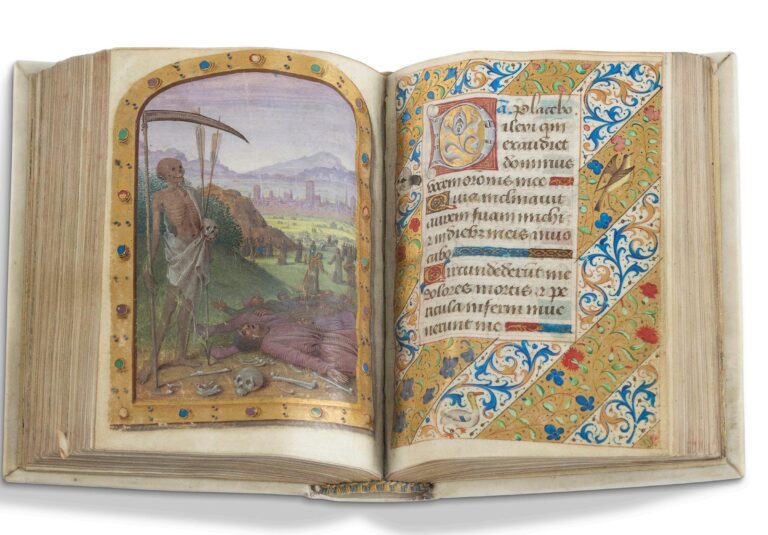 a. Placebo.
Dilexi qm
exaudiet
dominus
vocem oronis mee
Quia inclinavit
aurem suam michi
⁊ in diebꝫ meis invo
cabo
Circundederunt me
dolores mortis ⁊ pe
ricula inferni inve
nerunt me